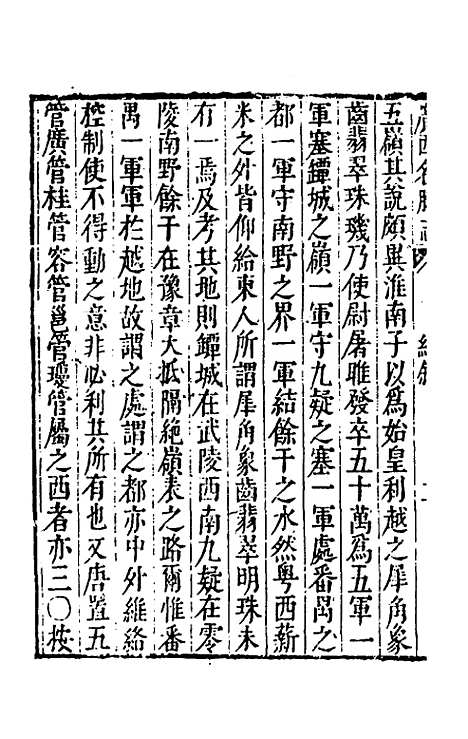 廣西名勝志 卷 總敘 二
五嶺其說頗異淮南子以為始皇利越之犀角象
齒翡翠珠璣乃使尉屠睢發卒五十萬爲五軍一
軍塞鐔城之嶺一軍守九疑之塞一軍處番禺之
都一軍守南野之界一軍結餘干之水然粤西薪
米之外皆仰給東人所謂犀角象齒翡翠明珠未
有一焉及考其地則鐔城在武陵西南九疑在零
陵南野餘干在豫章大抵隔絶嶺表之路爾惟番
禺一軍軍於越地故謂之處謂之都亦中外維絡
控制使不得動之意非必利其所有也又唐置五
管廣管桂管容管邕管瓊管屬之西者亦三〇按